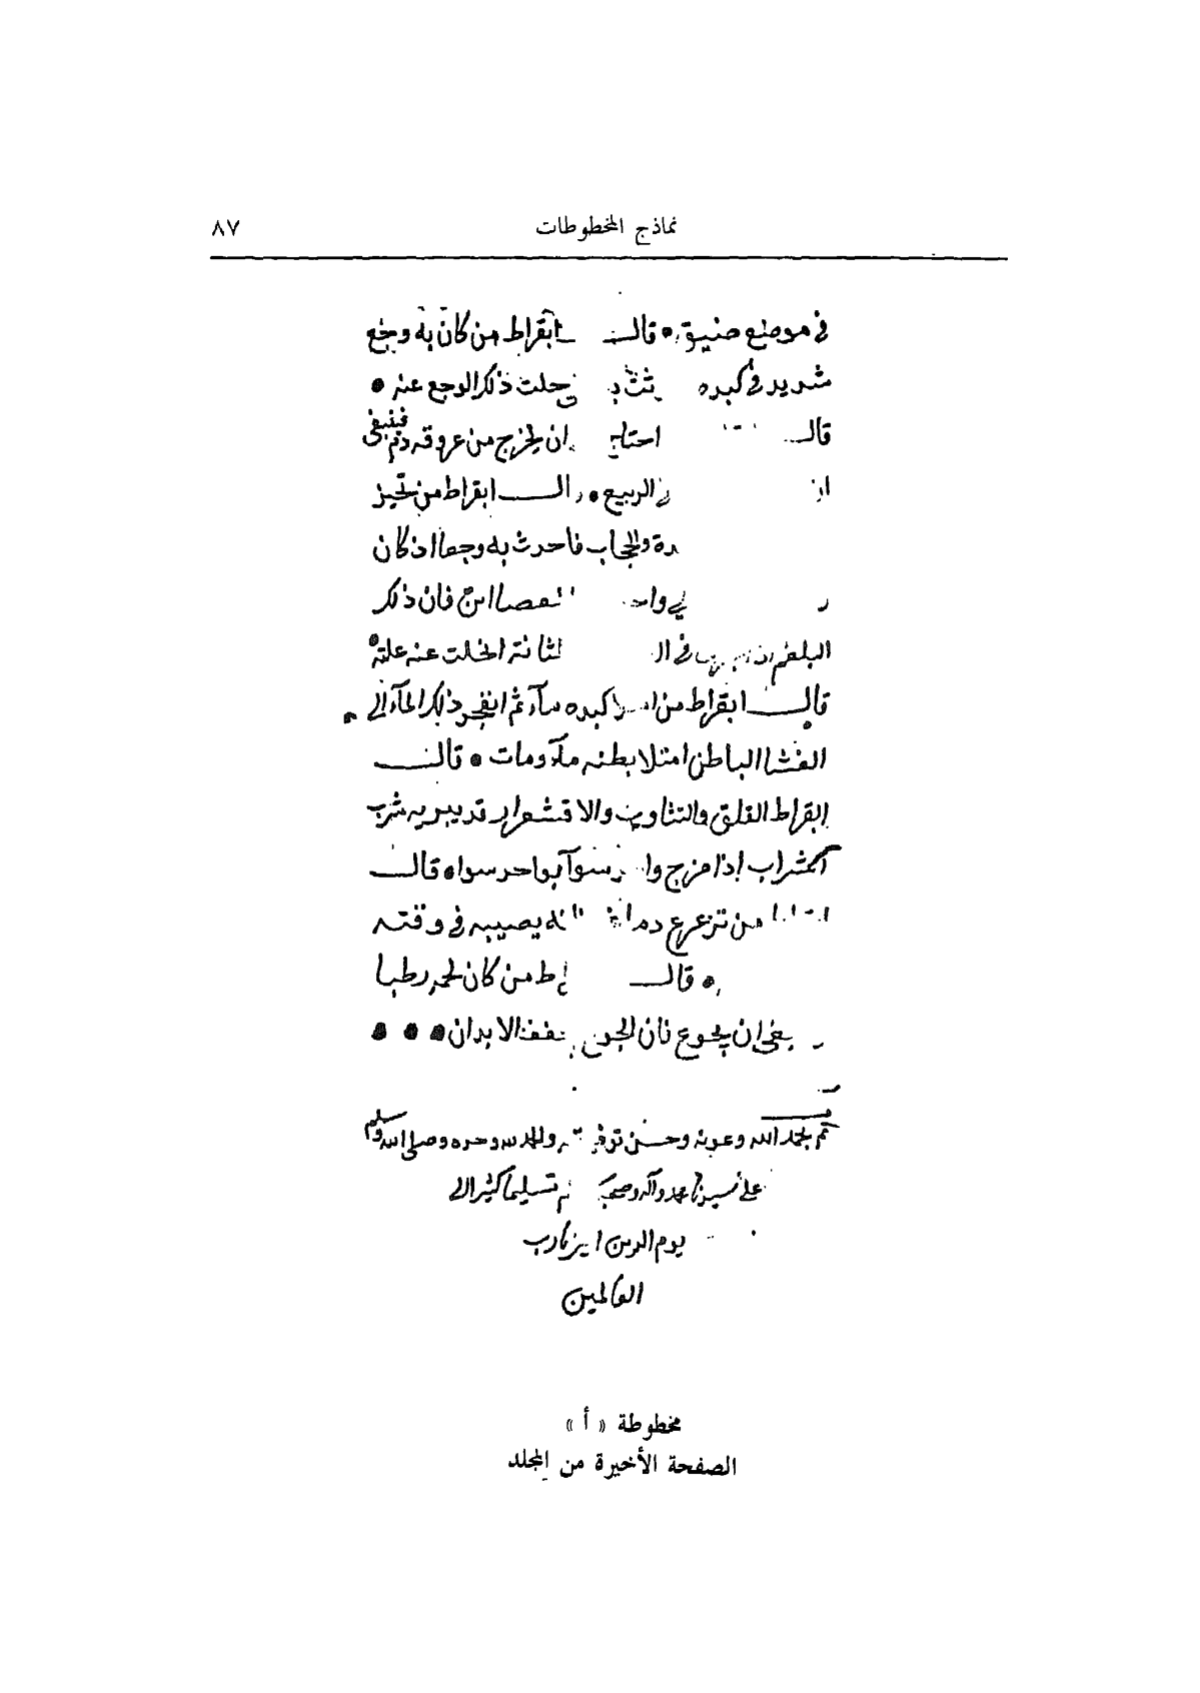 نماذج المخطوطات ٨٧
في موضع ضيق، قال ابقراط من كان به وجع
شديد في كبده حلت ذلك الوجع عنه
قال احتاج ان يخرج من عروقه دم فينبغي
الربيع ابقراط من تحيز
والحجاب فاحدث به وجعا اذ كان
فان ذلك
البلغم في الثانة انحلت عنه علته
قال ابقراط من كبده ماء ثم انفجر ذلك الماء الى
الغشا الباطن امتلا بطنه ماء ومات قال
ابقراط القلق والتثاوب والاقشعرار قد يبريه شرب
الشراب اذا مزج سوآ بواحد سوا قال
من تزعزع دماغه يصيبه في وقته
قال من كان لحمه رطبا
ان يجوع فان الجوع يجفف الابدان
تم بحمد الله وعونه وحسن توفيقه والحمد لله وحده وصلى الله وسلم
على سيدنا محمد وآله وصحبه تسليما كثيرا الى
يوم الدين رب
العالمين
مخطوطة « أ »
الصفحة الأخيرة من المجلد